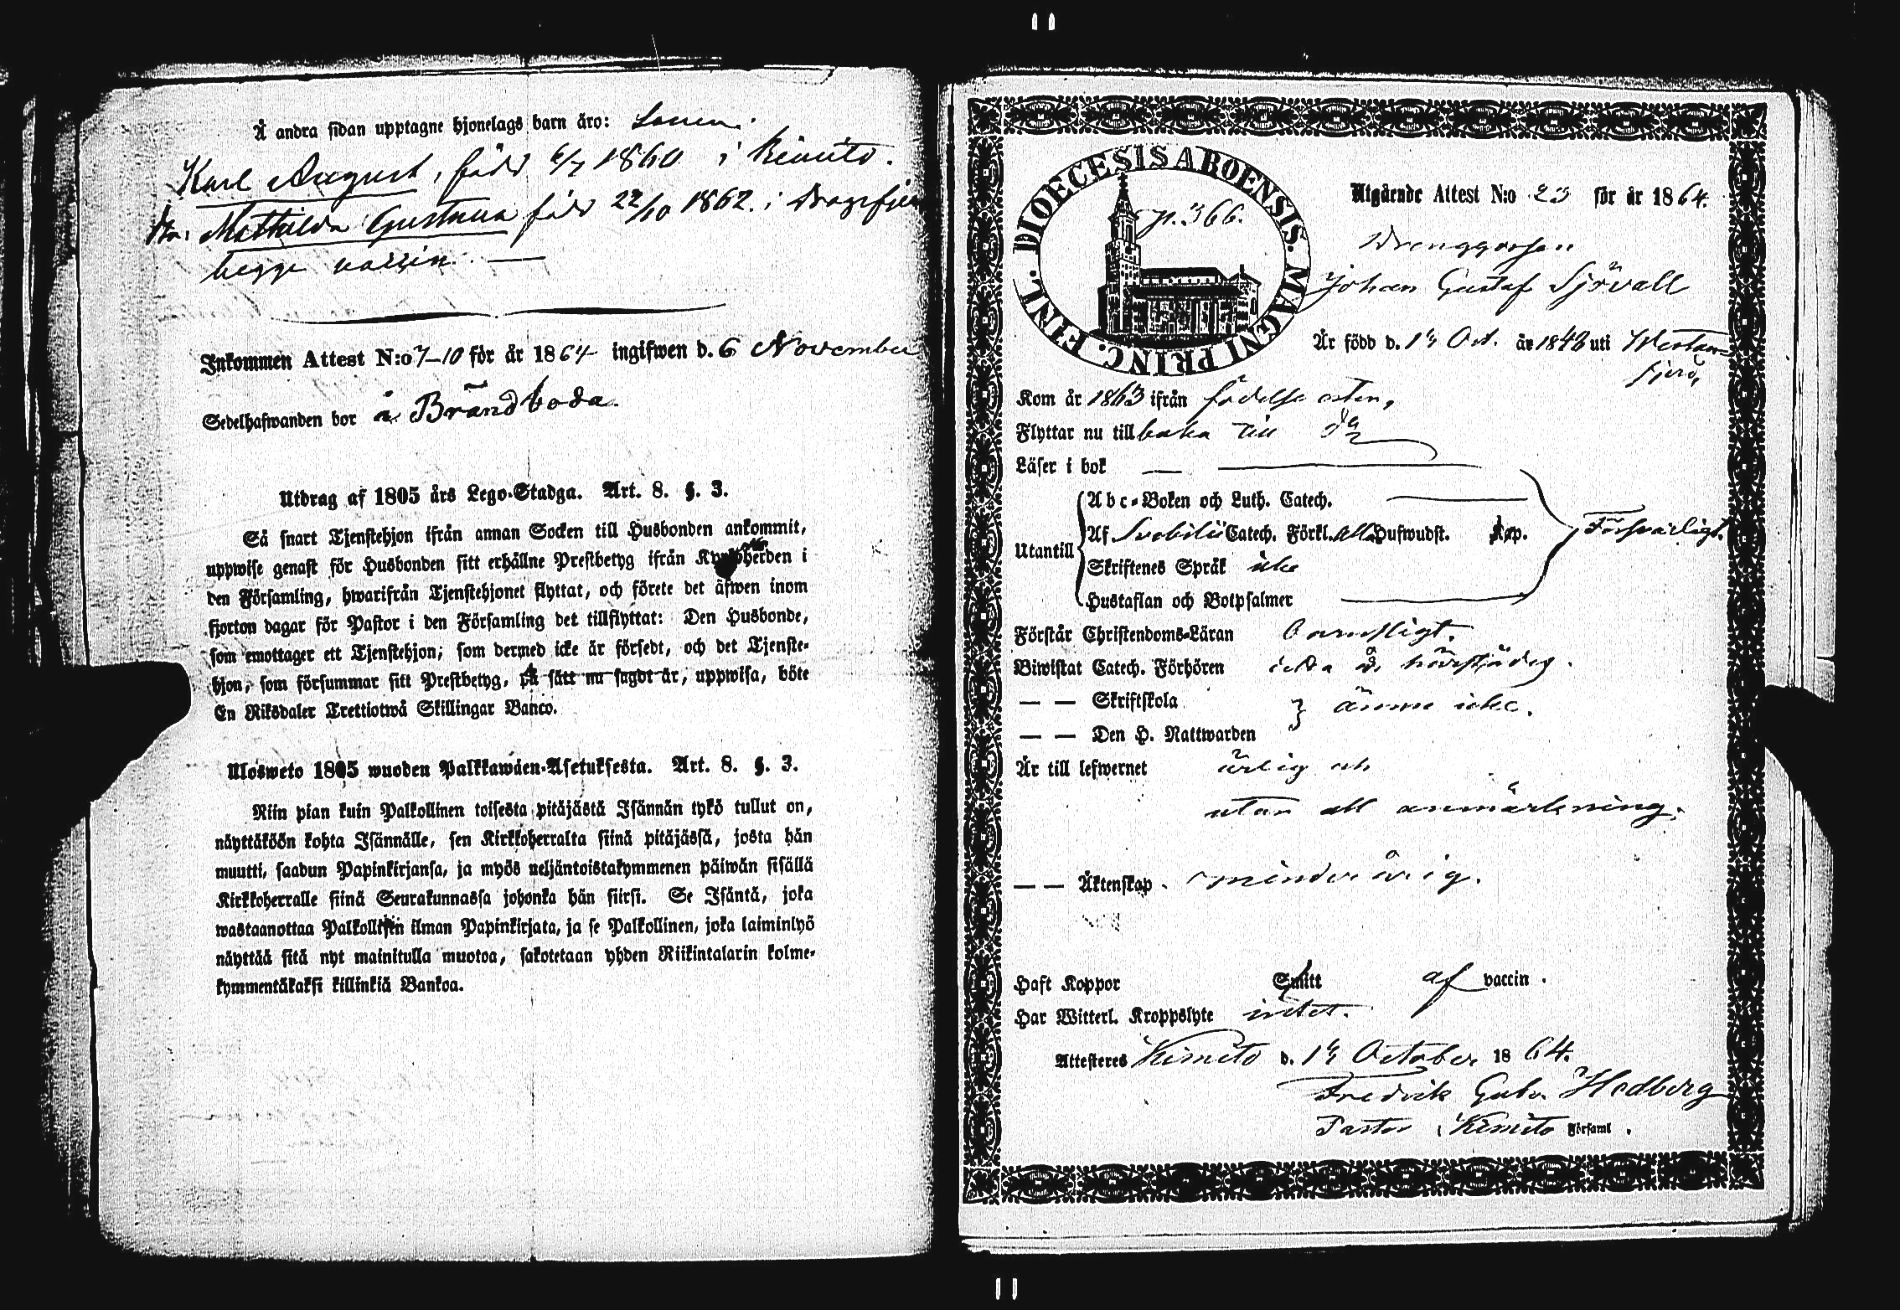 Å andra sidan upptagne hjonelags barn äro:
Karl August, född 6/7 1860 i Kimito.
Mathilda Gustava född 22/10 1862. i Dragsfjerd
begge vaccin.
Inkommen Attest N:o 7–10 för år 1864 ingifwen d. 6 November
Sedelhafwanden bor å Brändboda.
Utdrag af 1805 års Lego-Stadga. Art. 8. §. 3.
Så snart Tjenstehjon ifrån annan Socken till Husbonden ankommit,
uppwise genast för Husbonden sitt erhållne Prestbetyg ifrån Kyrkoherden i
den Församling, hwarifrån Tjenstehjonet flyttat, och förete det äfwen inom
fjorton dagar för Pastor i den Församling det tillflyttat: Den Husbonde,
som emottager ett Tjenstehjon, som dermed icke är försedt, och det Tjenste-
hjon, som försummar sitt Prestbetyg, på sätt nu sagdt är, uppwisa, böte
En Riksdaler Trettiotwå Skillingar Banco.
Ulosweto 1805 wuoden Palkkawäen-Asetuksesta. Art. 8. §. 3.
Niin pian kuin Palkollinen toisesta pitäjästä Isännän tykö tullut on,
näyttäköön kohta Isännälle, sen Kirkkoherralta siinä pitäjässä, josta hän
muutti, saadun Papinkirjansa, ja myös neljäntoistakymmenen päiwän sisällä
Kirkkoherralle siinä Seurakunnassa johonka hän siirsi. Se Isäntä, joka
wastaanottaa Palkollisen ilman Papinkirjata, ja se Palkollinen, joka laiminlyö
näyttää sitä nyt mainitulla muotoa, sakotetaan yhden Riikintalarin kolme-
kymmentäkaksi killinkiä Bankoa.
DIOECESIS ABOENSIS. MAGNI PRINC. FINL.
p. 366.
Utgående Attest N:o 23 för år 1864.
Drenggossen
Johan Gustaf Sjövall
Är född d. Oct. år 1848 uti Westan
fjerd,
Kom år 1863 ifrån födelse orten,
Flyttar nu tillbaka till do
Läser i bok —
Utantill
Abc-Boken och Luth. Catech.
Af Svebilii Catech. Förkl. alla Hufwudst. Kap. Försvarligt.
Skriftenes Språk icke
Hustaflan och Botpsalmer
Förstår Christendoms-Läran barnsligt.
Biwistat Catech. Förhören
— — Skriftskola
— — Den H. Nattwarden } ännu icke.
Är till lefwernet ärlig och
utan all anmärkning.
— — Äktenskap. minderårig.
Haft Koppor Smitt af vaccin.
Har Witterl. Kroppslyte intet.
Attesteras Kimito d. October 1864.
Fredrik Gab. Hedberg
Pastor i Kimito Församl.